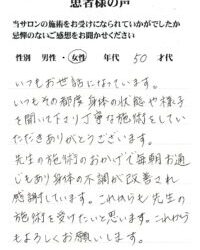 患者様の声
当サロンの施術をお受けになられていかがでしたか
忌憚のないご感想をお聞かせください
性別 男性・女性 年代 50 才代
いつもお世話になっています。
いつもその都度身体の状態や様子
を聞いて下さりご寧な施術をしてい
ただきありがとうございます。
先生の施術のおかげで毎朝お通
じもあり身体の不調が改善され
感謝しています。これからも先生の
施術を受けたいと思います。これから
もよろしくお願いします。